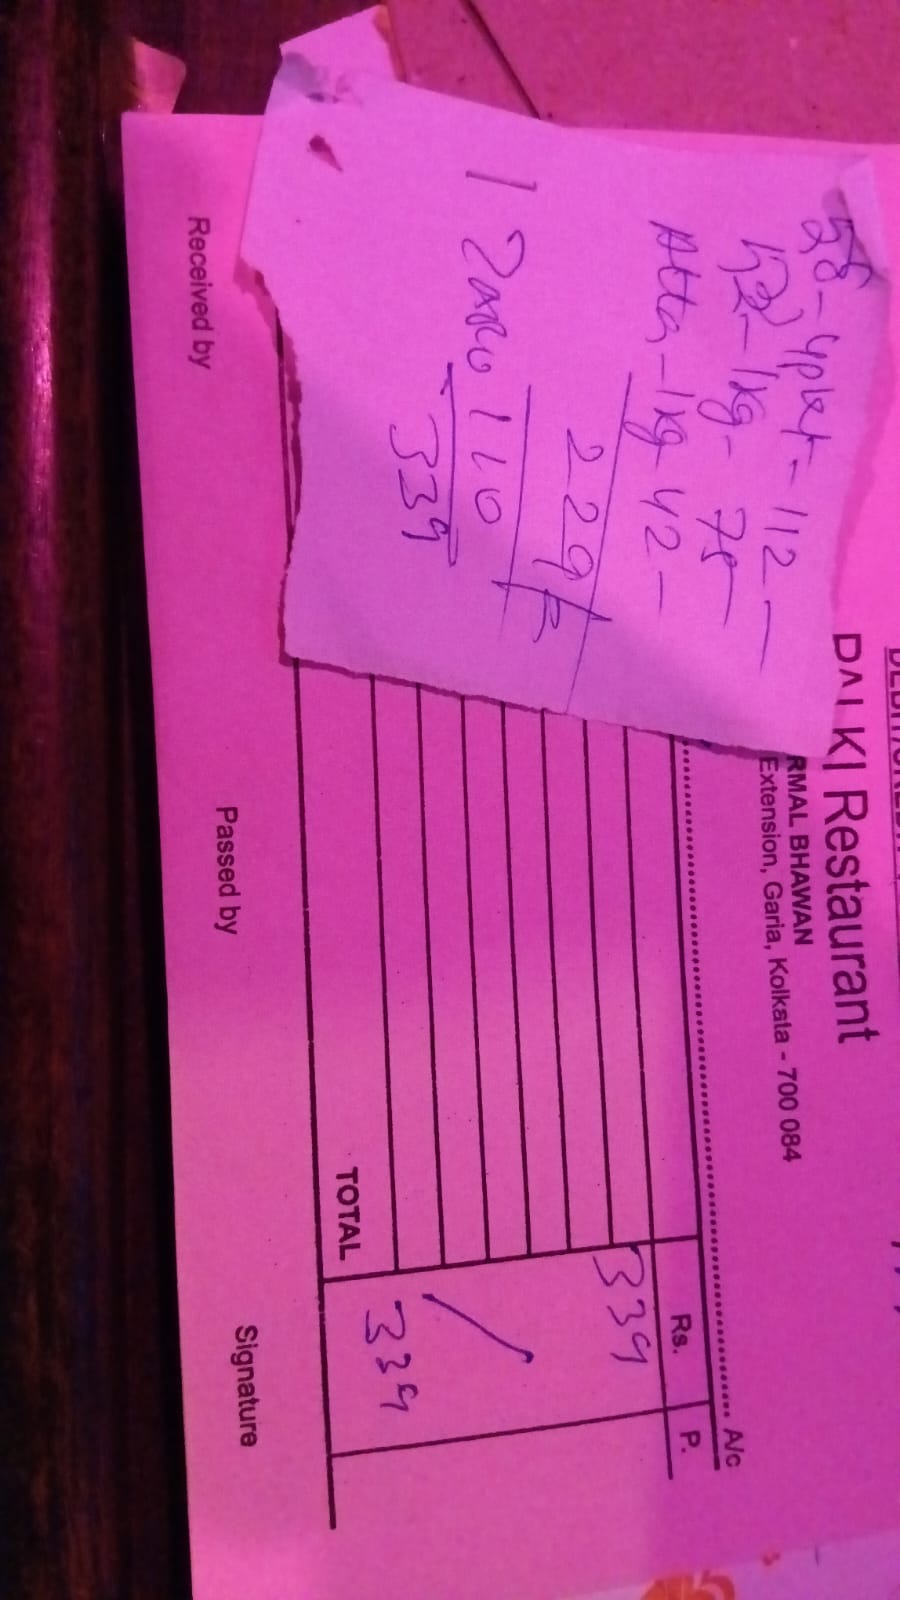 DALKI Restaurant
RMAL BHAWAN
Extension, Garia, Kolkata - 700 084
A/c
Rs. P.
339
TOTAL 339
Received by Passed by Signature
- 112 -
- 1kg - 75
Atta - 1kg 42 -
229
1 110
339